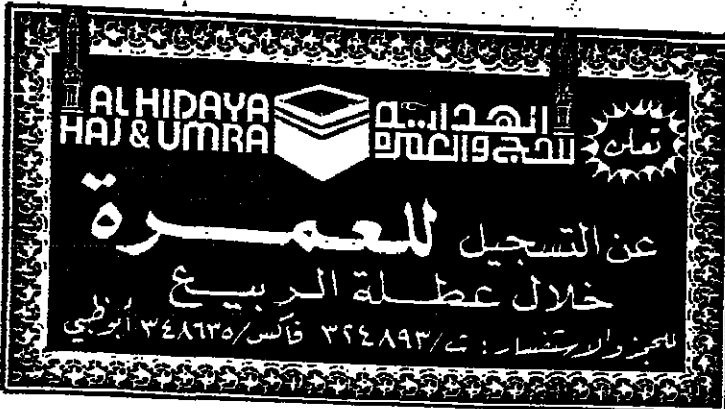 AL HIDAYA
HAJ & UMRA
الهداية
للحج والعمره
تعلن
عن التسجيل للعمـــرة
خلال عطـــلة الـــربيـــع
للحجز والاستفسار : ت/٣٢٤٨٩٣ فاكس/٣٤٨٦٣٥ أبوظبي